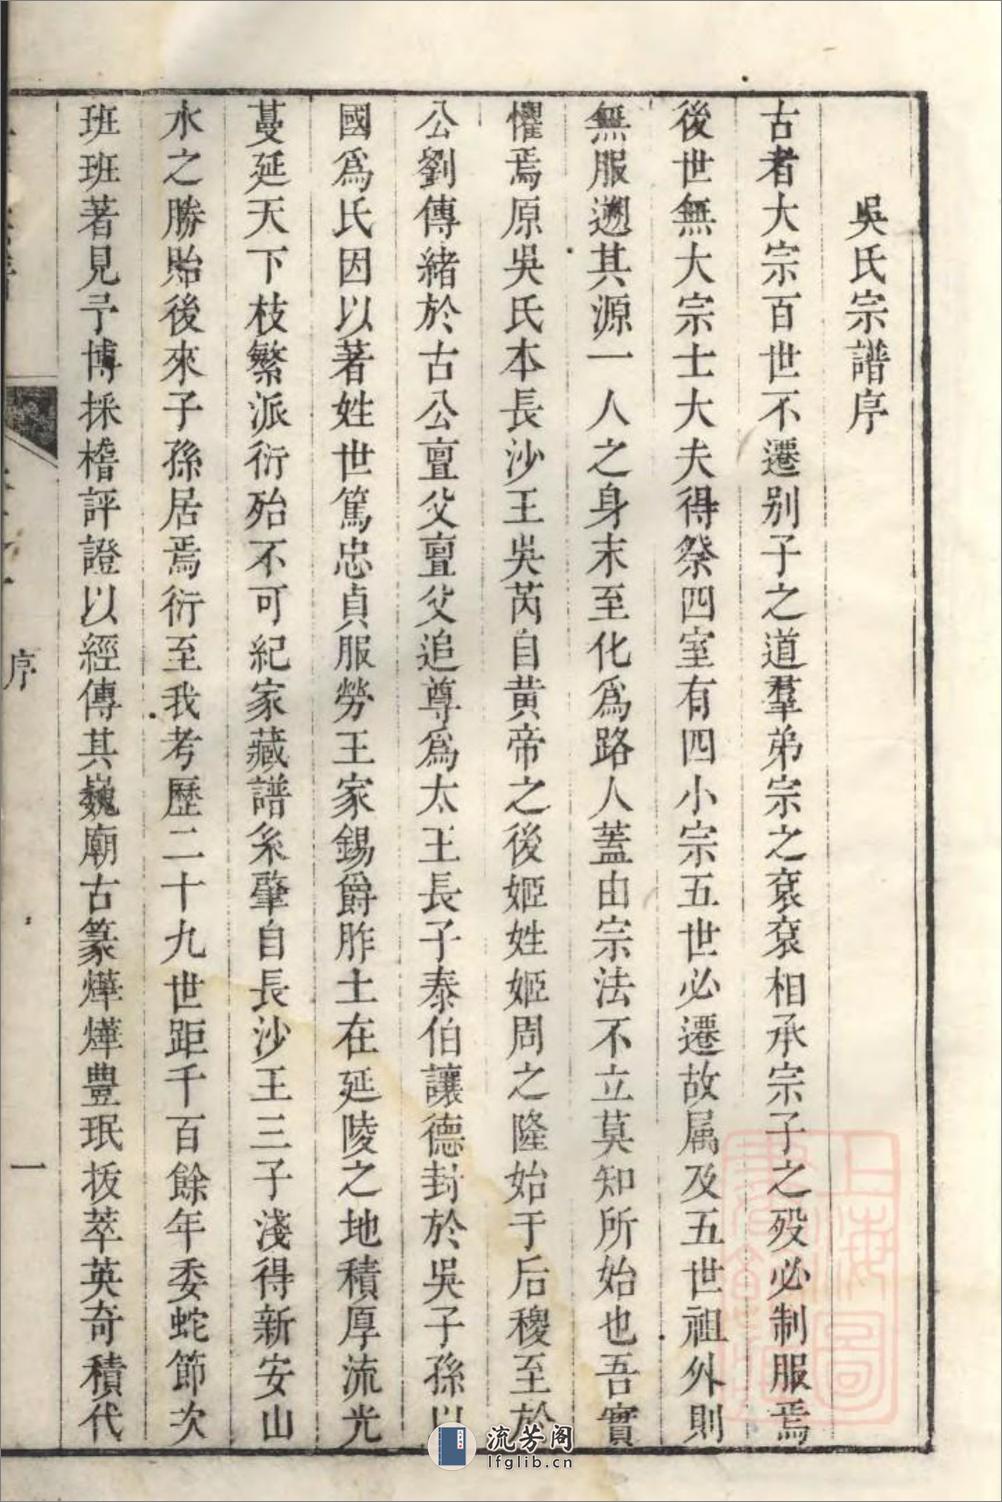 吳氏宗譜序
古者大宗百世不遷别子之道羣弟宗之裒裒相承宗子之殁必制服焉
後世無大宗士大夫得祭四室有四小宗五世必遷故属及五世祖外則
無服遡其源一人之身末至化為路人蓋由宗法不立莫知所始也吾實
懼焉原吳氏本長沙王吳芮自黄帝之後姬姓姬周之隆始于后稷至於
公劉傳緒於古公亶父亶父追尊為太王長子泰伯讓德封於吳子孫以
國爲氏因以著姓世篤忠貞服勞王家錫爵胙土在延陵之地積厚流光
蔓延天下枝繁派衍殆不可紀家藏譜系肇自長沙王三子淺得新安山
水之勝貽後來子孫居焉衍至我考歷二十九世距千百餘年委蛇節次
班班著見予博採稽評證以經傳其巍廟古篆燁燁豊珉拔萃英奇積代
序
一
上海圖
流芳阁
lfglib.cn